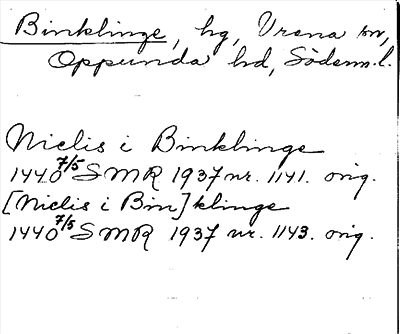 Binklinge, hg, Vrena sn,
Oppunda hd, Söderm.l.
Niclis i Binklinge
1440 7/5 SMR 1937 nr. 1141. orig.
[Niclis i Bin]klinge
1440 7/5 SMR 1937 nr. 1143. orig.